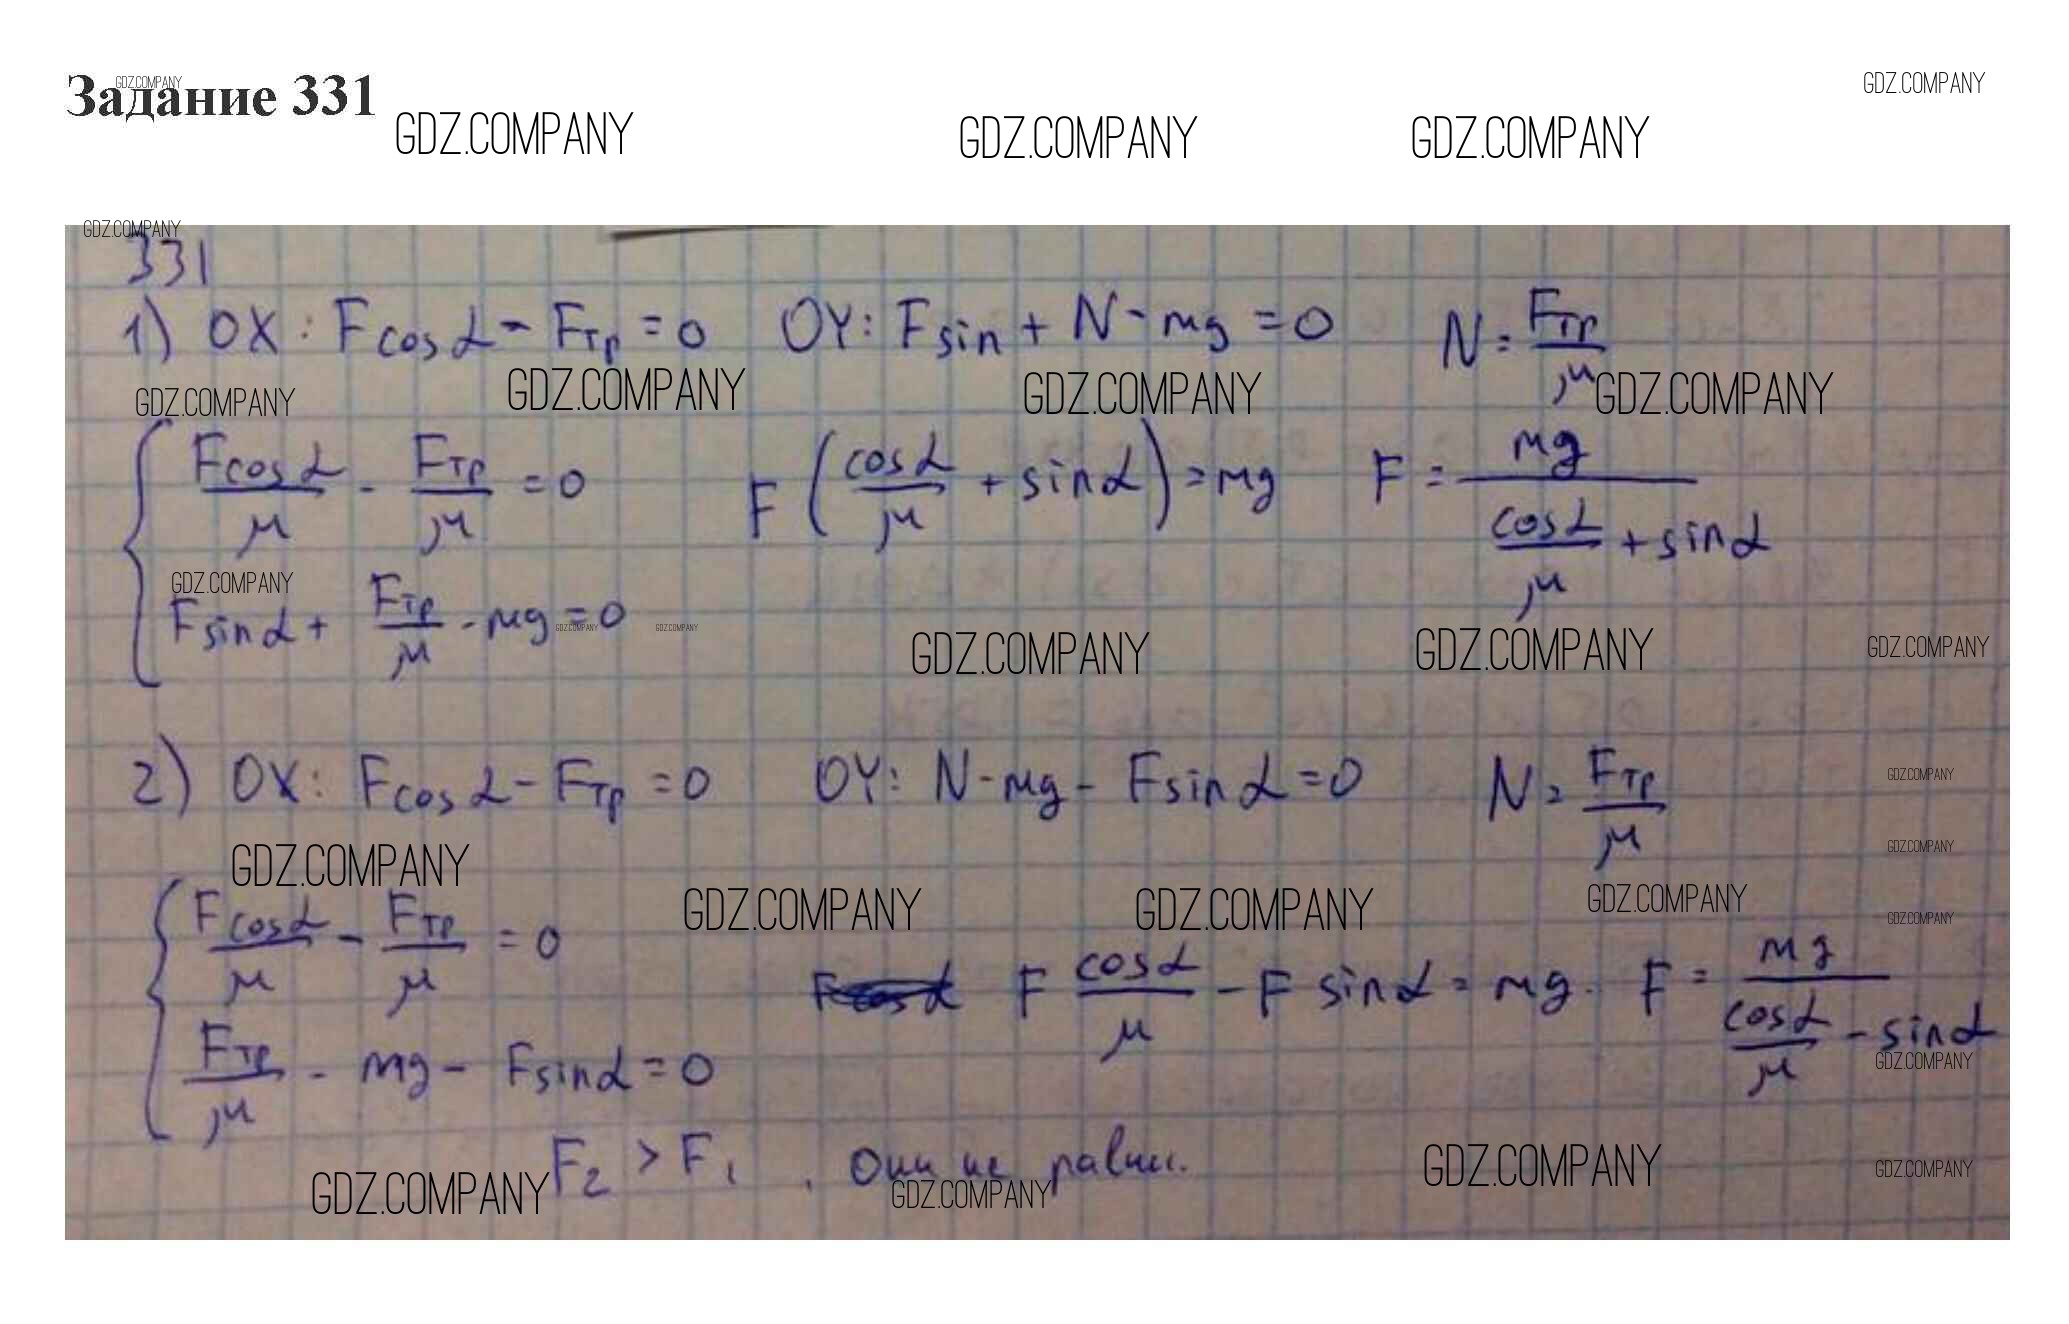 Задание 331
GDZ.COMPANY
GDZ.COMPANY
GDZ.COMPANY GDZ.COMPANY GDZ.COMPANY
GDZ.COMPANY
331
1) OX: F cos α - Fтр = 0 OY: F sin + N - mg = 0 N = Fтр/μ
GDZ.COMPANY GDZ.COMPANY GDZ.COMPANY GDZ.COMPANY
{ F cos α/μ - Fтр/μ = 0 F (cos α/μ + sin α) = mg F = mg/(cos α/μ + sin α)
GDZ.COMPANY
F sin α + Fтр/μ - mg = 0
GDZ.COMPANY GDZ.COMPANY
GDZ.COMPANY GDZ.COMPANY GDZ.COMPANY
2) OX: F cos α - Fтр = 0 OY: N - mg - F sin α = 0 N = Fтр/μ
GDZ.COMPANY
GDZ.COMPANY
GDZ.COMPANY
GDZ.COMPANY GDZ.COMPANY GDZ.COMPANY
GDZ.COMPANY
{ F cos α/μ - Fтр/μ = 0
F cos α/μ - F sin α = mg. F = mg/(cos α/μ - sin α)
GDZ.COMPANY
Fтр/μ - mg - F sin α = 0
F2 > F1, Они не равны.
GDZ.COMPANY GDZ.COMPANY GDZ.COMPANY GDZ.COMPANY